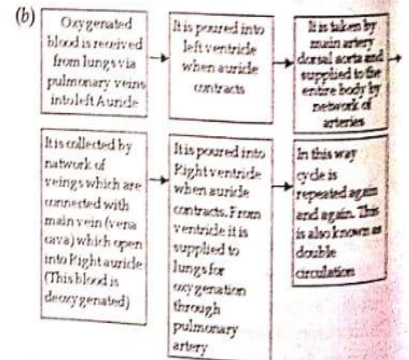 (b)
Oxygenated
blood is received
from lungs via
pulmonary veins
into left Auricle
It is poured into
left ventricle
when auricle
contracts
It is taken by
main artery
dorsal aorta and
supplied to the
entire body by
network of
arteries
It is collected by
natwork of
veings which are
connected with
main vein (vena
cava) which open
into Right auricle
(This blood is
deoxygenated)
It is poured into
Right ventricle
when auricle
contracts. From
ventricle it is
supplied to
lungs for
oxygenation
through
pulmonary
artery
In this way
cycle is
repeated again
and again. This
is also known as
double
circulation